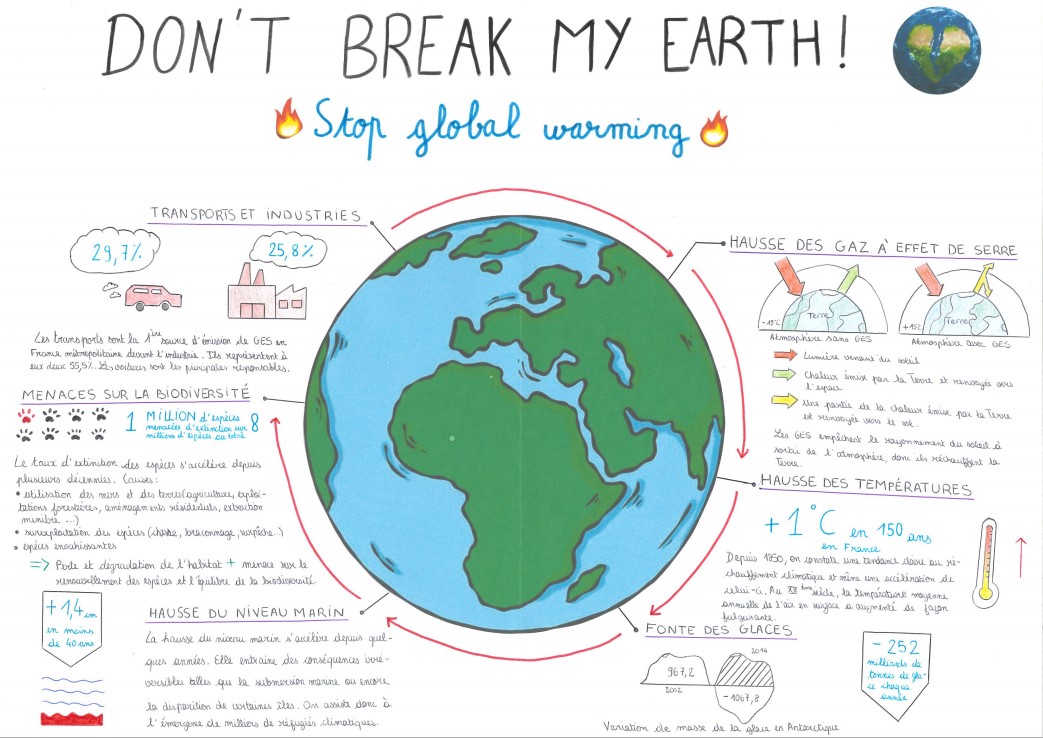 DON'T BREAK MY EARTH!
Stop global warming
TRANSPORTS ET INDUSTRIES
29,7%
25,8%
Les transports sont la 1ère source d'émission de GES en
France métropolitaine devant l'industrie. Ils représentent à
eux deux 55,5%. Les voitures sont les principales responsables.
MENACES SUR LA BIODIVERSITÉ
1 MILLION d'espèces
menacées d'extinction sur 8
millions d'espèces au total
Le taux d'extinction des espèces s'accélère depuis
plusieurs décennies. Causes:
• utilisation des mers et des terres (agriculture, exploi-
tations forestières, aménagements résidentiels, extraction
minière ...)
• surexploitation des espèces (chasse, braconnage, surpêche...)
• espèces envahissantes
=> Perte et dégradation de l'habitat + menace sur le
renouvellement des espèces et l'équilibre de la biodiversité.
HAUSSE DU NIVEAU MARIN
+1,4 cm
en moins
de 40 ans
La hausse du niveau marin s'accélère depuis quel-
ques années. Elle entraine des conséquences irré-
versibles telles que la submersion marine ou encore
la disparition de certaines îles. On assiste donc à
l'émergence de milliers de réfugiés climatiques.
HAUSSE DES GAZ À EFFET DE SERRE
-18°C
Terre
+15°C
Terre
Atmosphère sans GES
Atmosphère avec GES
Lumière venant du soleil
Chaleur émise par la Terre et renvoyée vers
l'espace
Une partie de la chaleur émise par la Terre
est renvoyée vers le sol.
Les GES empêchent le rayonnement du soleil à
sortir de l'atmosphère, donc ils réchauffent la
Terre.
HAUSSE DES TEMPÉRATURES
+1°C en 150 ans
en France
Depuis 1850, on constate une tendance claire au ré-
chauffement climatique et même une accélération de
celui-ci. Au XXème siècle, la température moyenne
annuelle de l'air en surface a augmenté de façon
fulgurante.
FONTE DES GLACES
2014
967,2
2002
-1067,8
Variation de masse de la glace en Antarctique
-252
milliards de
tonnes de gla-
ce chaque
année